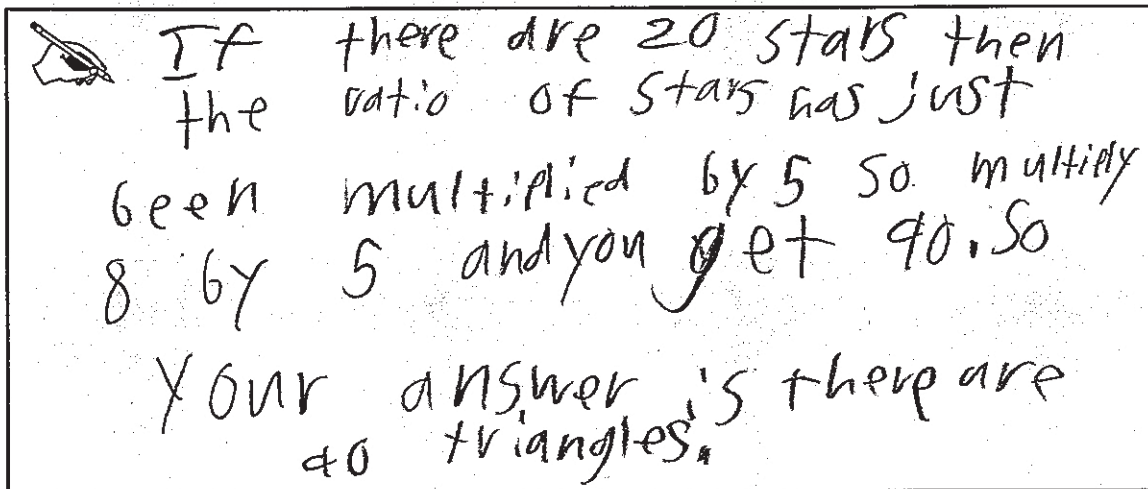 If there are 20 stars then
the ratio of stars has just
been multiplied by 5 so multiply
8 by 5 and you get 40. So
Your answer is there are
40 triangles.